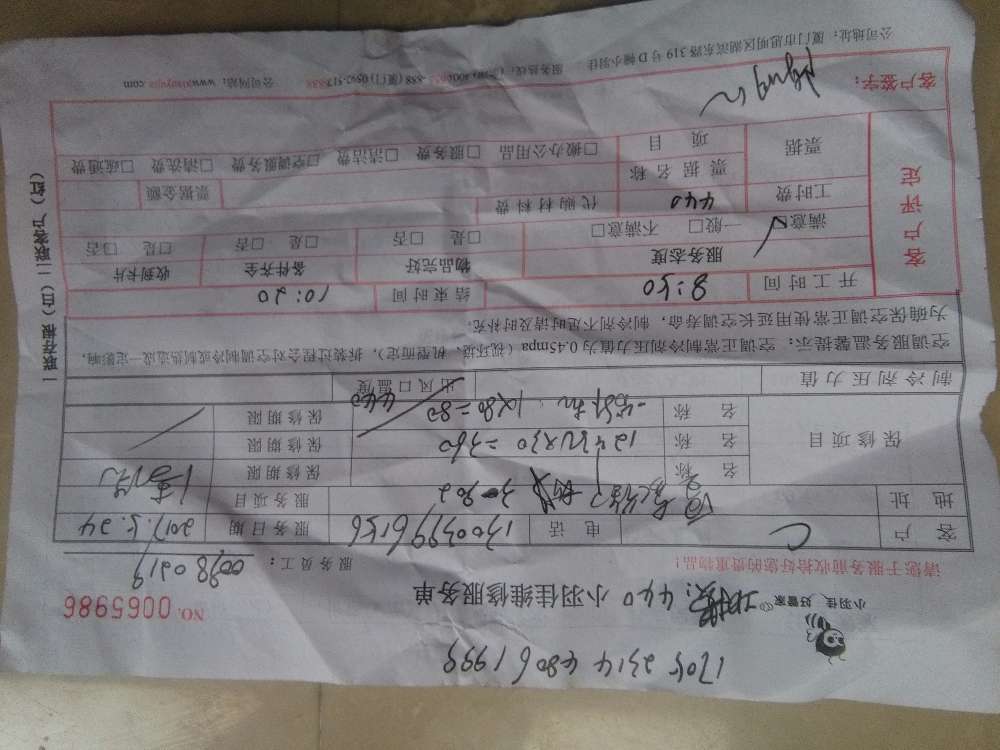 1705 2314 4806 1999
小羽佳 好管家
440 小羽佳维修服务单
NO. 0065986
请您于服务前收拾好您的贵重物品!
服务员工: 0098 0219
客户 C 电话 13003996156 服务日期 2017.5.24
地址 302 服务项目
保修项目 名称 保修期限
名称 12组X30=360 保修期限
名称 1X80=80 保修期限
制冷剂压力值 出风口温度 440
空调服务温馨提示:空调正常制冷剂压力值为0.45mpa(视环境、机型而定),拆装过程会对空调制冷或制热造成一定影响,
为确保空调正常使用延长空调寿命,制冷剂不足时请及时补充。
客户评定
开工时间 8:50 结束时间 10:20
服务态度 物品完好 备件齐全 收到卡片
满意□ 一般□ 不满意□ 是□ 否□ 是□ 否□ 是□ 否□
工时费 440 代购材料费 票据金额
票据 票据名称
项目 □搬办公用品 □服务费 □清洁费 □空调服务费 □清洗费 □疏通费
客户签字:
公司地址:厦门市思明区湖滨东路319号D幢小羽佳 服务热线: 公司网站:www.xiaoyujia.com
一联存根(白)二联客户(红)